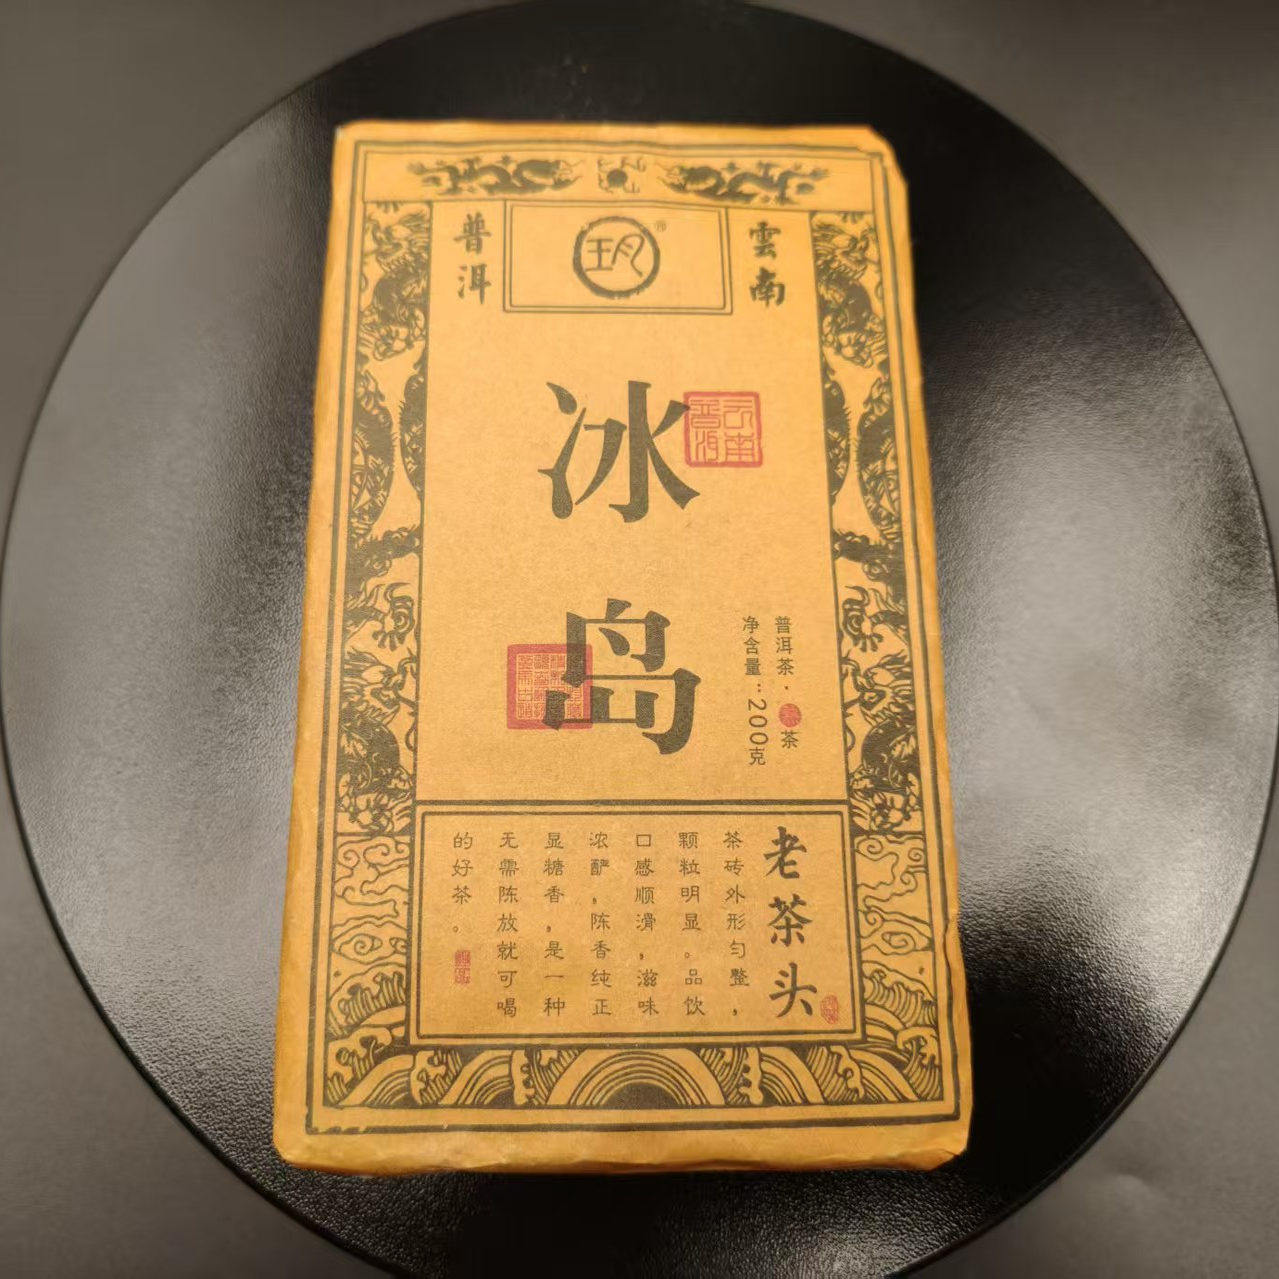 雲南
普洱
玥
冰岛
云南
普洱
普洱茶·熟茶
净含量：200克
老茶头
茶砖外形匀整，
颗粒明显。品饮
口感顺滑，滋味
浓酽，陈香纯正
显糖香，是一种
无需陈放就可喝
的好茶。